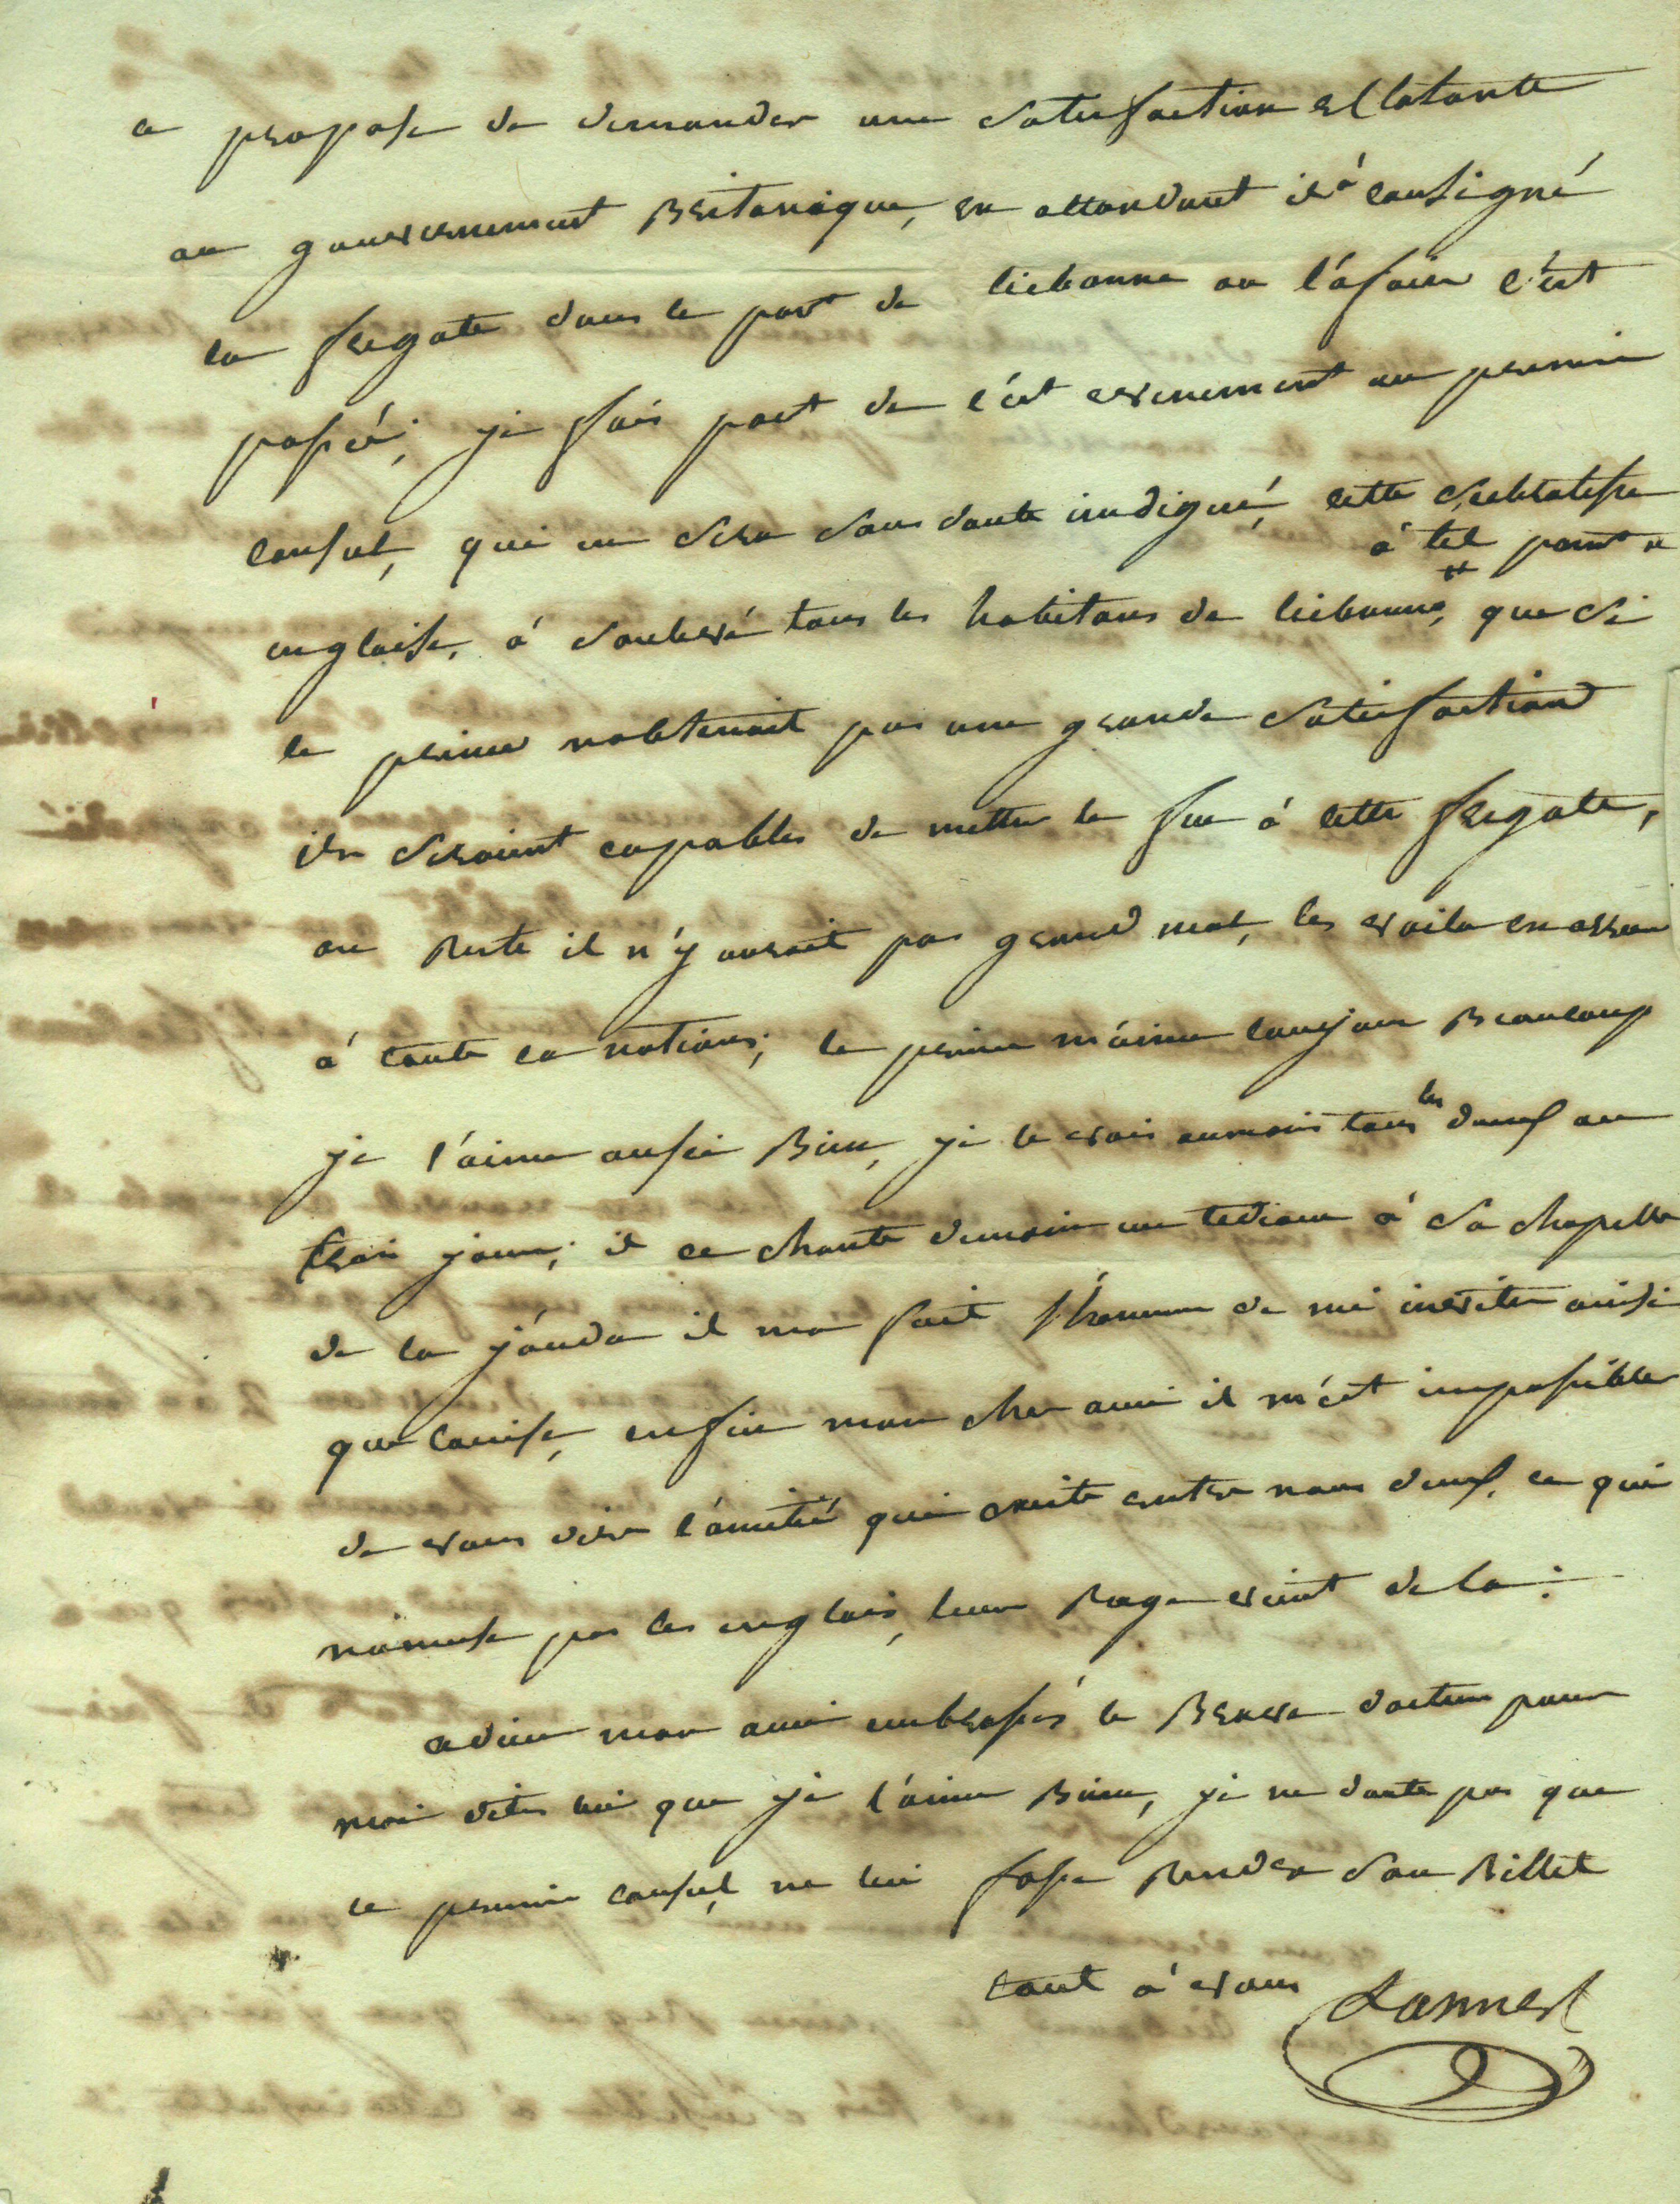 ce propose de demander une satisfaction esclatante
au gouvernement Britanique, en attendant il á consigné
la fregate dans le port de lisbonne ou l'áfaire c'est
passéé; je fais part de c'ét evenement au premier
consul, qui en sera sans doute indigné, cette
á tel point #
anglaise, á soulevé tous les habitans de lisbonne, # que si
le prince nobtenait pas une grande satisfaction
ils seraient capables de mettre le feu á cette fregate,
au Reste il n'y aurait pas grand mal, les voila en orreur
á toute la nations; le prince m'áime toujour Beaucoup
je l'aime aussi Bien, je le vois aumois tous les deus ou
trois jours; il ce chante demain un tedeum á sa chapelle
de la il ma fait l'honneur de mi inviter ainsi
que Louise, enfin mon cher ami il m'ést impossible
de vous dire l'ámitié qui existe entre nous deus, ce qui
n'amuse pas les anglais, leur Rage vient de la:
adieu mon ami embrassés le Brave docteur pour
moi dites lui que je l'áime Bien, je ne doute pas que
le premier consul, ne lui fasse Rendre son Billet
tout á vous Lannes